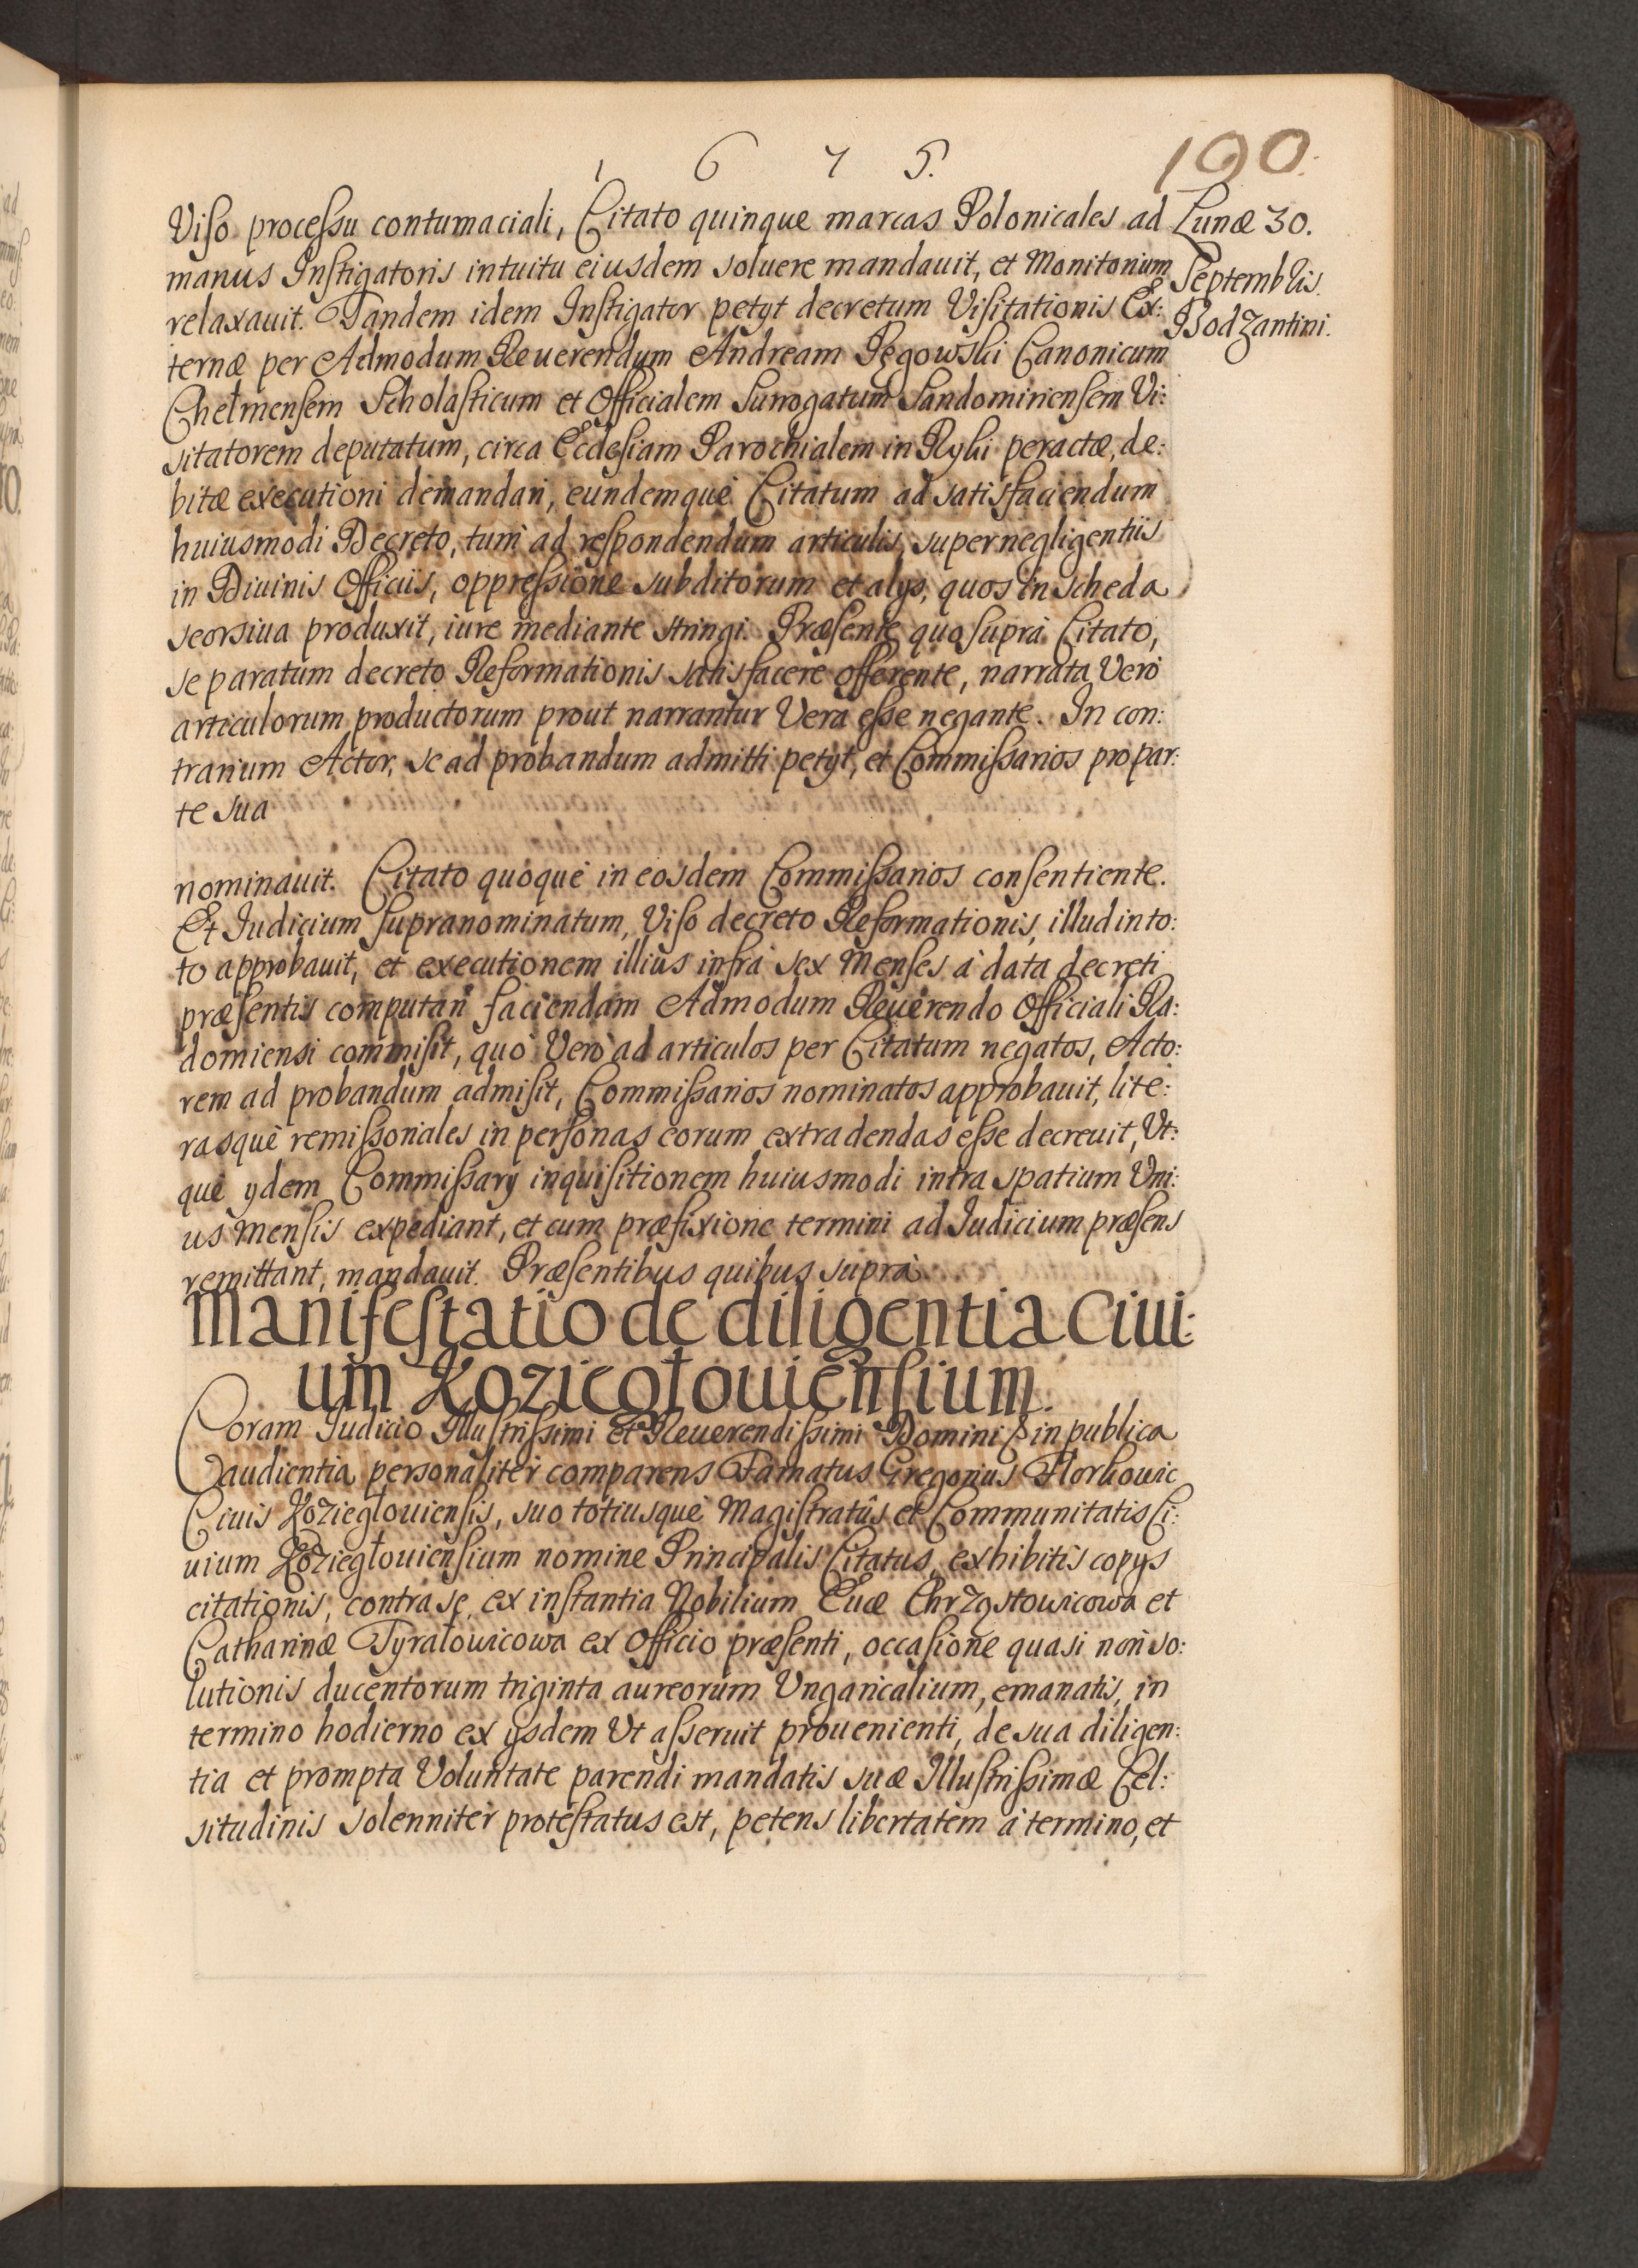 1 6 7 5.
190.
Viso processu contumaciali, Citato quinque marcas Polonicales ad
manus Instigatoris intuitu eiusdem soluere mandauit, et Monitorium
relaxauit. Tandem idem Instigator petyt decretum Visitationis Ex:
ternæ per Admodum Reuerendum Andream Pęgowski Canonicum
Chełmensem Scholasticum et Officialem Surrogatum Sandomiriensem Vi:
sitatorem deputatum, circa Ecclesiam Parochialem in Ryki peractæ, de:
bitæ executioni demandari, eundemque Citatum ad satisfaciendum
huiusmodi Decreto, tum ad respondendum articulis, super negligentiis
in Diuinis Officiis, oppressione subditorum et alys, quos in scheda
seorsiua produxit, iure mediante stringi. Præsente quo suprà Citato,
se paratum decreto Reformationis satisfacere offerente, narrata Verò
articulorum productorum prout narrantur Vera esse negante. In con:
trarium Actor, se ad probandum admitti petyt, et Commissarios pro par:
te sua
nominauit. Citato quoque in eosdem Commissarios consentiente.
Et Iudicium supranominatum, Viso decreto Reformationis, illud in to:
to approbauit, et executionem illius infra sex Menses à data decreti
præsentis computan faciendam Admodum Reuerendo Officiali Ra:
domiensi commisit, quò Verò ad articulos per Citatum negatos, Acto:
rem ad probandum admisit, Commissarios nominatos approbauit, lite:
rasque remissoriales in personas eorum extradendas esse decreuit, Vt:
que ydem Commissary inquisitionem huiusmodi intra spatium Vni:
us Mensis expediant, et cum præfixione termini ad Iudicium præsens
remittant, mandauit. Præsentibus quibus suprà.
Lunæ 30.
Septembris.
Bodzantini.
Manifestatio de diligentia Ciui:
um Kozicgłouiensium.
Coram Iudicio Illustrissimi et Reuerendissimi Domini & in publica
audientia personaliter comparens Famatus Gregorius Florkouic
Ciuis Kozieglouiensis, suo totiusque Magistratûs et Communitatis Ci:
uium Koziegłouiensium nomine Principalis Citatus, exhibitis copys
citationis, contra se, ex instantia Nobilium Euæ Chrzystowicowa et
Catharinæ Tyrałowicowa ex Officio præsenti, occasione quasi non so:
lutionis ducentorum triginta aureorum Vngaricalium, emanatis, in
termino hodierno ex ysdem Vt asseruit prouenienti, de sua diligen:
tia et prompta Voluntate parendi mandatis suæ Illustrissimæ Cel:
situdinis solenniter protestatus est, petens libertatem à termino, et